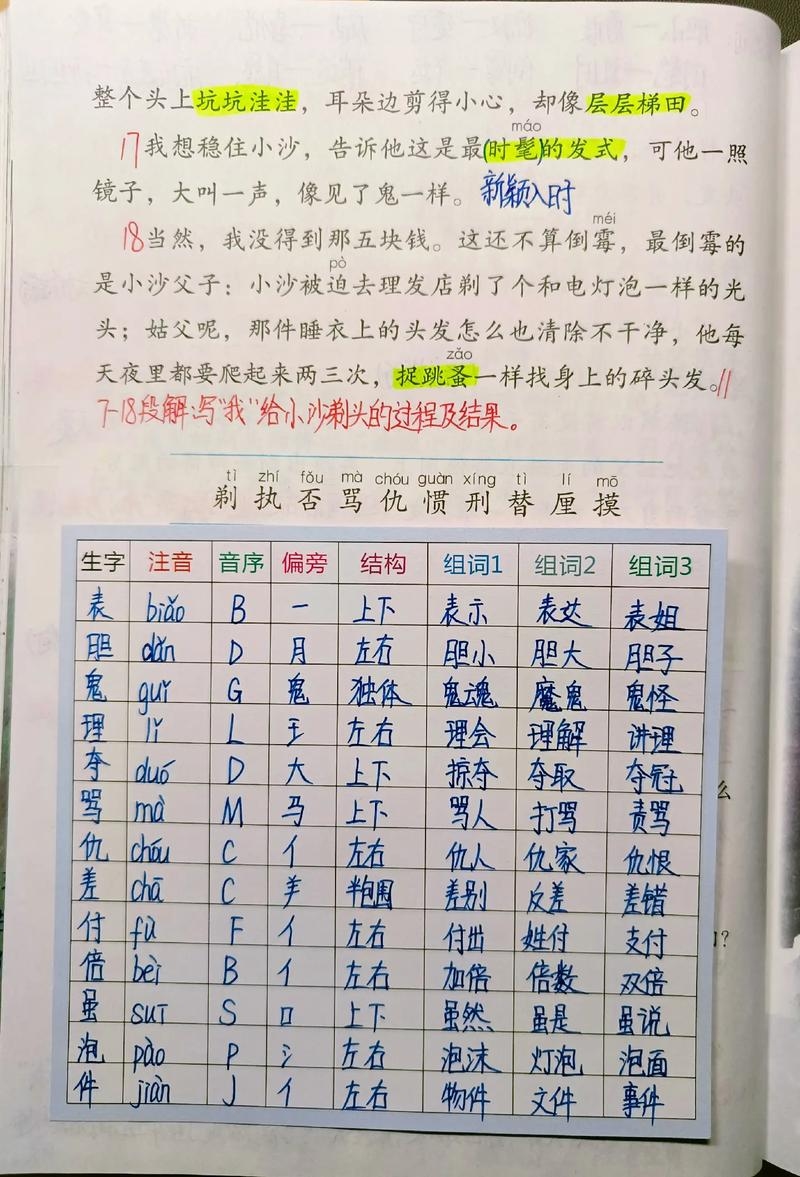 整个头上坑坑洼洼，耳朵边剪得小心，却像层层梯田。
máo
17我想稳住小沙，告诉他这是最(时髦)的发式，可他一照
镜子，大叫一声，像见了鬼一样。 新颖入时
méi
18当然，我没得到那五块钱。这还不算倒霉，最倒霉的
pò
是小沙父子：小沙被迫去理发店剃了个和电灯泡一样的光
头；姑父呢，那件睡衣上的头发怎么也清除不干净，他每
zǎo
天夜里都要爬起来两三次，捉跳蚤一样找身上的碎头发。//
7-18段解:写"我"给小沙剃头的过程及结果。
tì zhí fǒu mà chóu guàn xíng tì lí mō
剃 执 否 骂 仇 惯 刑 替 厘 摸
生字 注音 音序 偏旁 结构 组词1 组词2 组词3
表 biǎo B 一 上下 表示 表达 表姐
胆 dǎn D 月 左右 胆小 胆大 胆子
鬼 guǐ G 鬼 独体 鬼魂 魔鬼 鬼怪
理 lǐ L 王 左右 理会 理解 讲理
夺 duó D 大 上下 掠夺 夺取 夺冠
骂 mà M 马 上下 骂人 打骂 责骂
仇 chóu C 亻 左右 仇人 仇家 仇恨
差 chā C 羊 半包围 差别 反差 差错
付 fù F 亻 左右 付出 姓付 支付
倍 bèi B 亻 左右 加倍 倍数 双倍
虽 suī S 口 上下 虽然 虽是 虽说
泡 pào P 氵 左右 泡沫 灯泡 泡面
件 jiàn J 亻 左右 物件 文件 事件
么
?